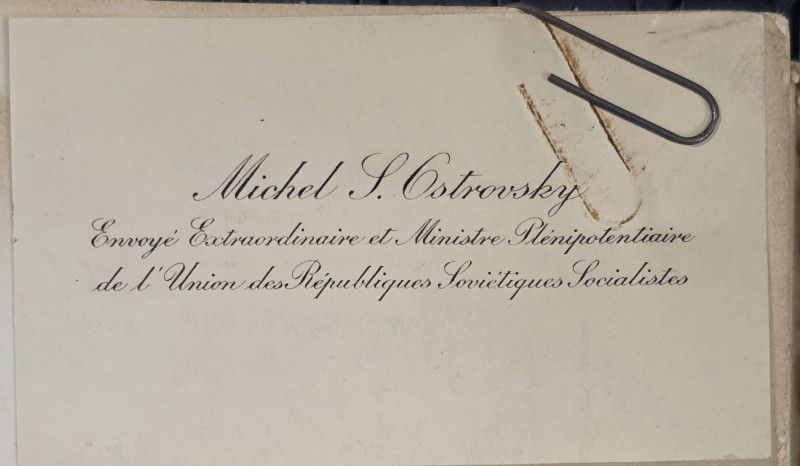 Michel S. Ostrovsky
Envoyé Extraordinaire et Ministre Plénipotentiaire
de l'Union des Républiques Soviétiques Socialistes